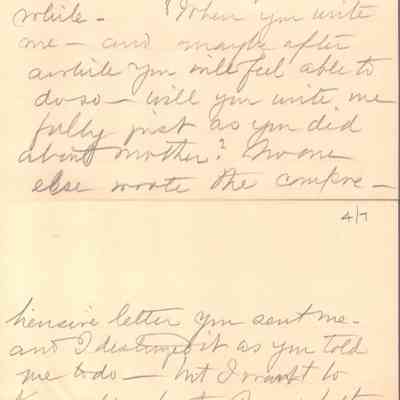 while — When you write
me — and maybe after
awhile you will feel able to
do so — will you write me
fully just as you did
about Mother? No one
else wrote the compre —
4/7
hensive letter you sent me —
and I destroyed it as you told
me to do — but I want to